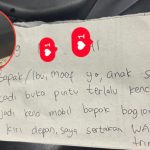 Bapak/Ibu, maaf ya, anak s
tadi buka pintu terlalu kenc
jadi kena mobil bapak bagian
kiri depan, saya sertakan WA